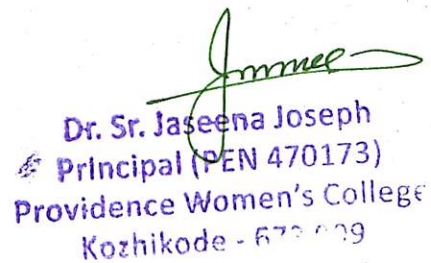 Dr. Sr. Jaseena Joseph
Principal (PEN 470173)
Providence Women's College
Kozhikode -